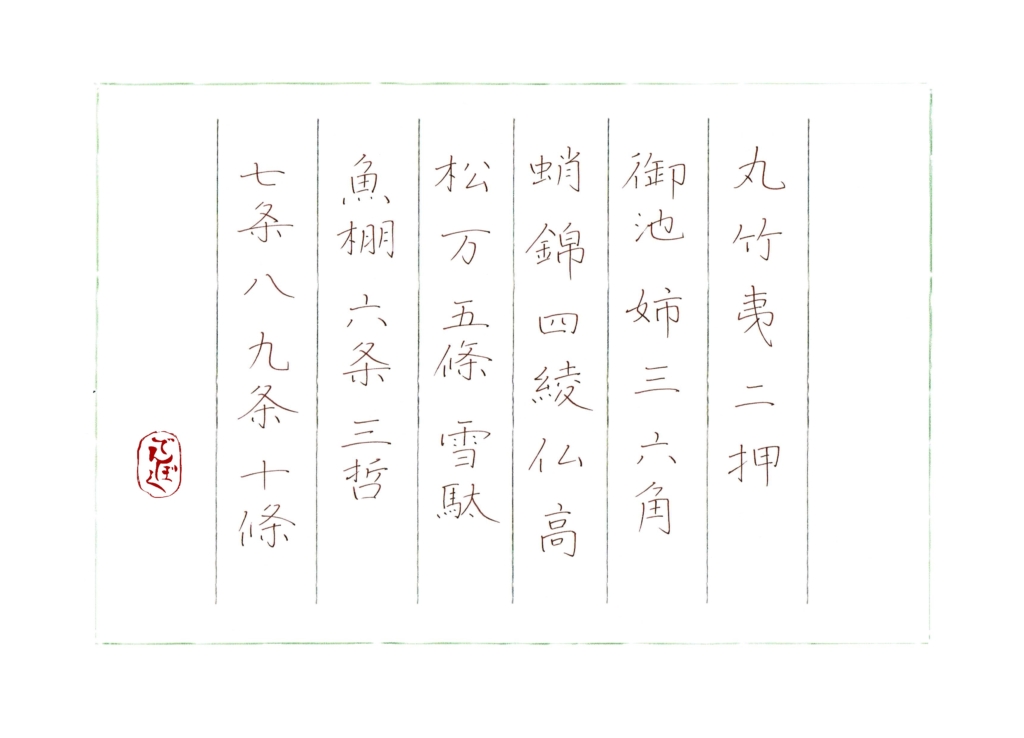 丸竹夷二押
御池姉三六角
蛸錦四綾仏高
松万五條雪駄
魚棚六条三哲
七条八九条十條
でんぼく